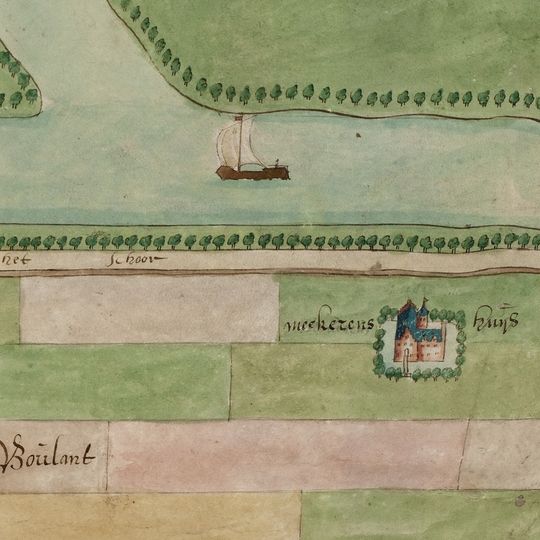 het schoor
meekerens huijs
Boulant